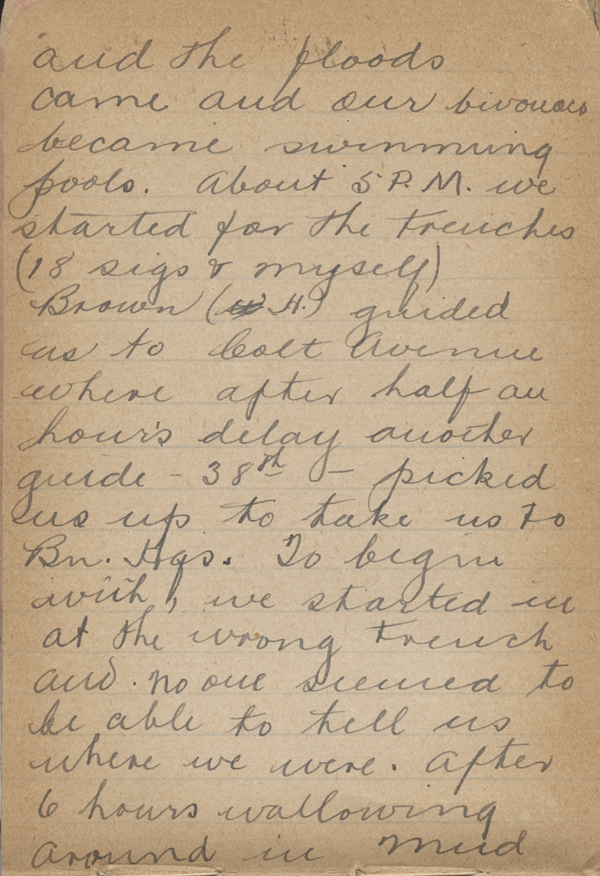 and the floods
came and our bivouacs
became swimming
pools. About 5 P.M. we
started for the trenches
(18 sigs & myself)
Brown (H.) guided
us to Colt Avenue
where after half an
hour's delay another
guide - 38th - picked
us up to take us to
Bn. Hqs. To begin
with, we started in
at the wrong trench
and no one seemed to
be able to tell us
where we were. After
6 hours wallowing
around in mud